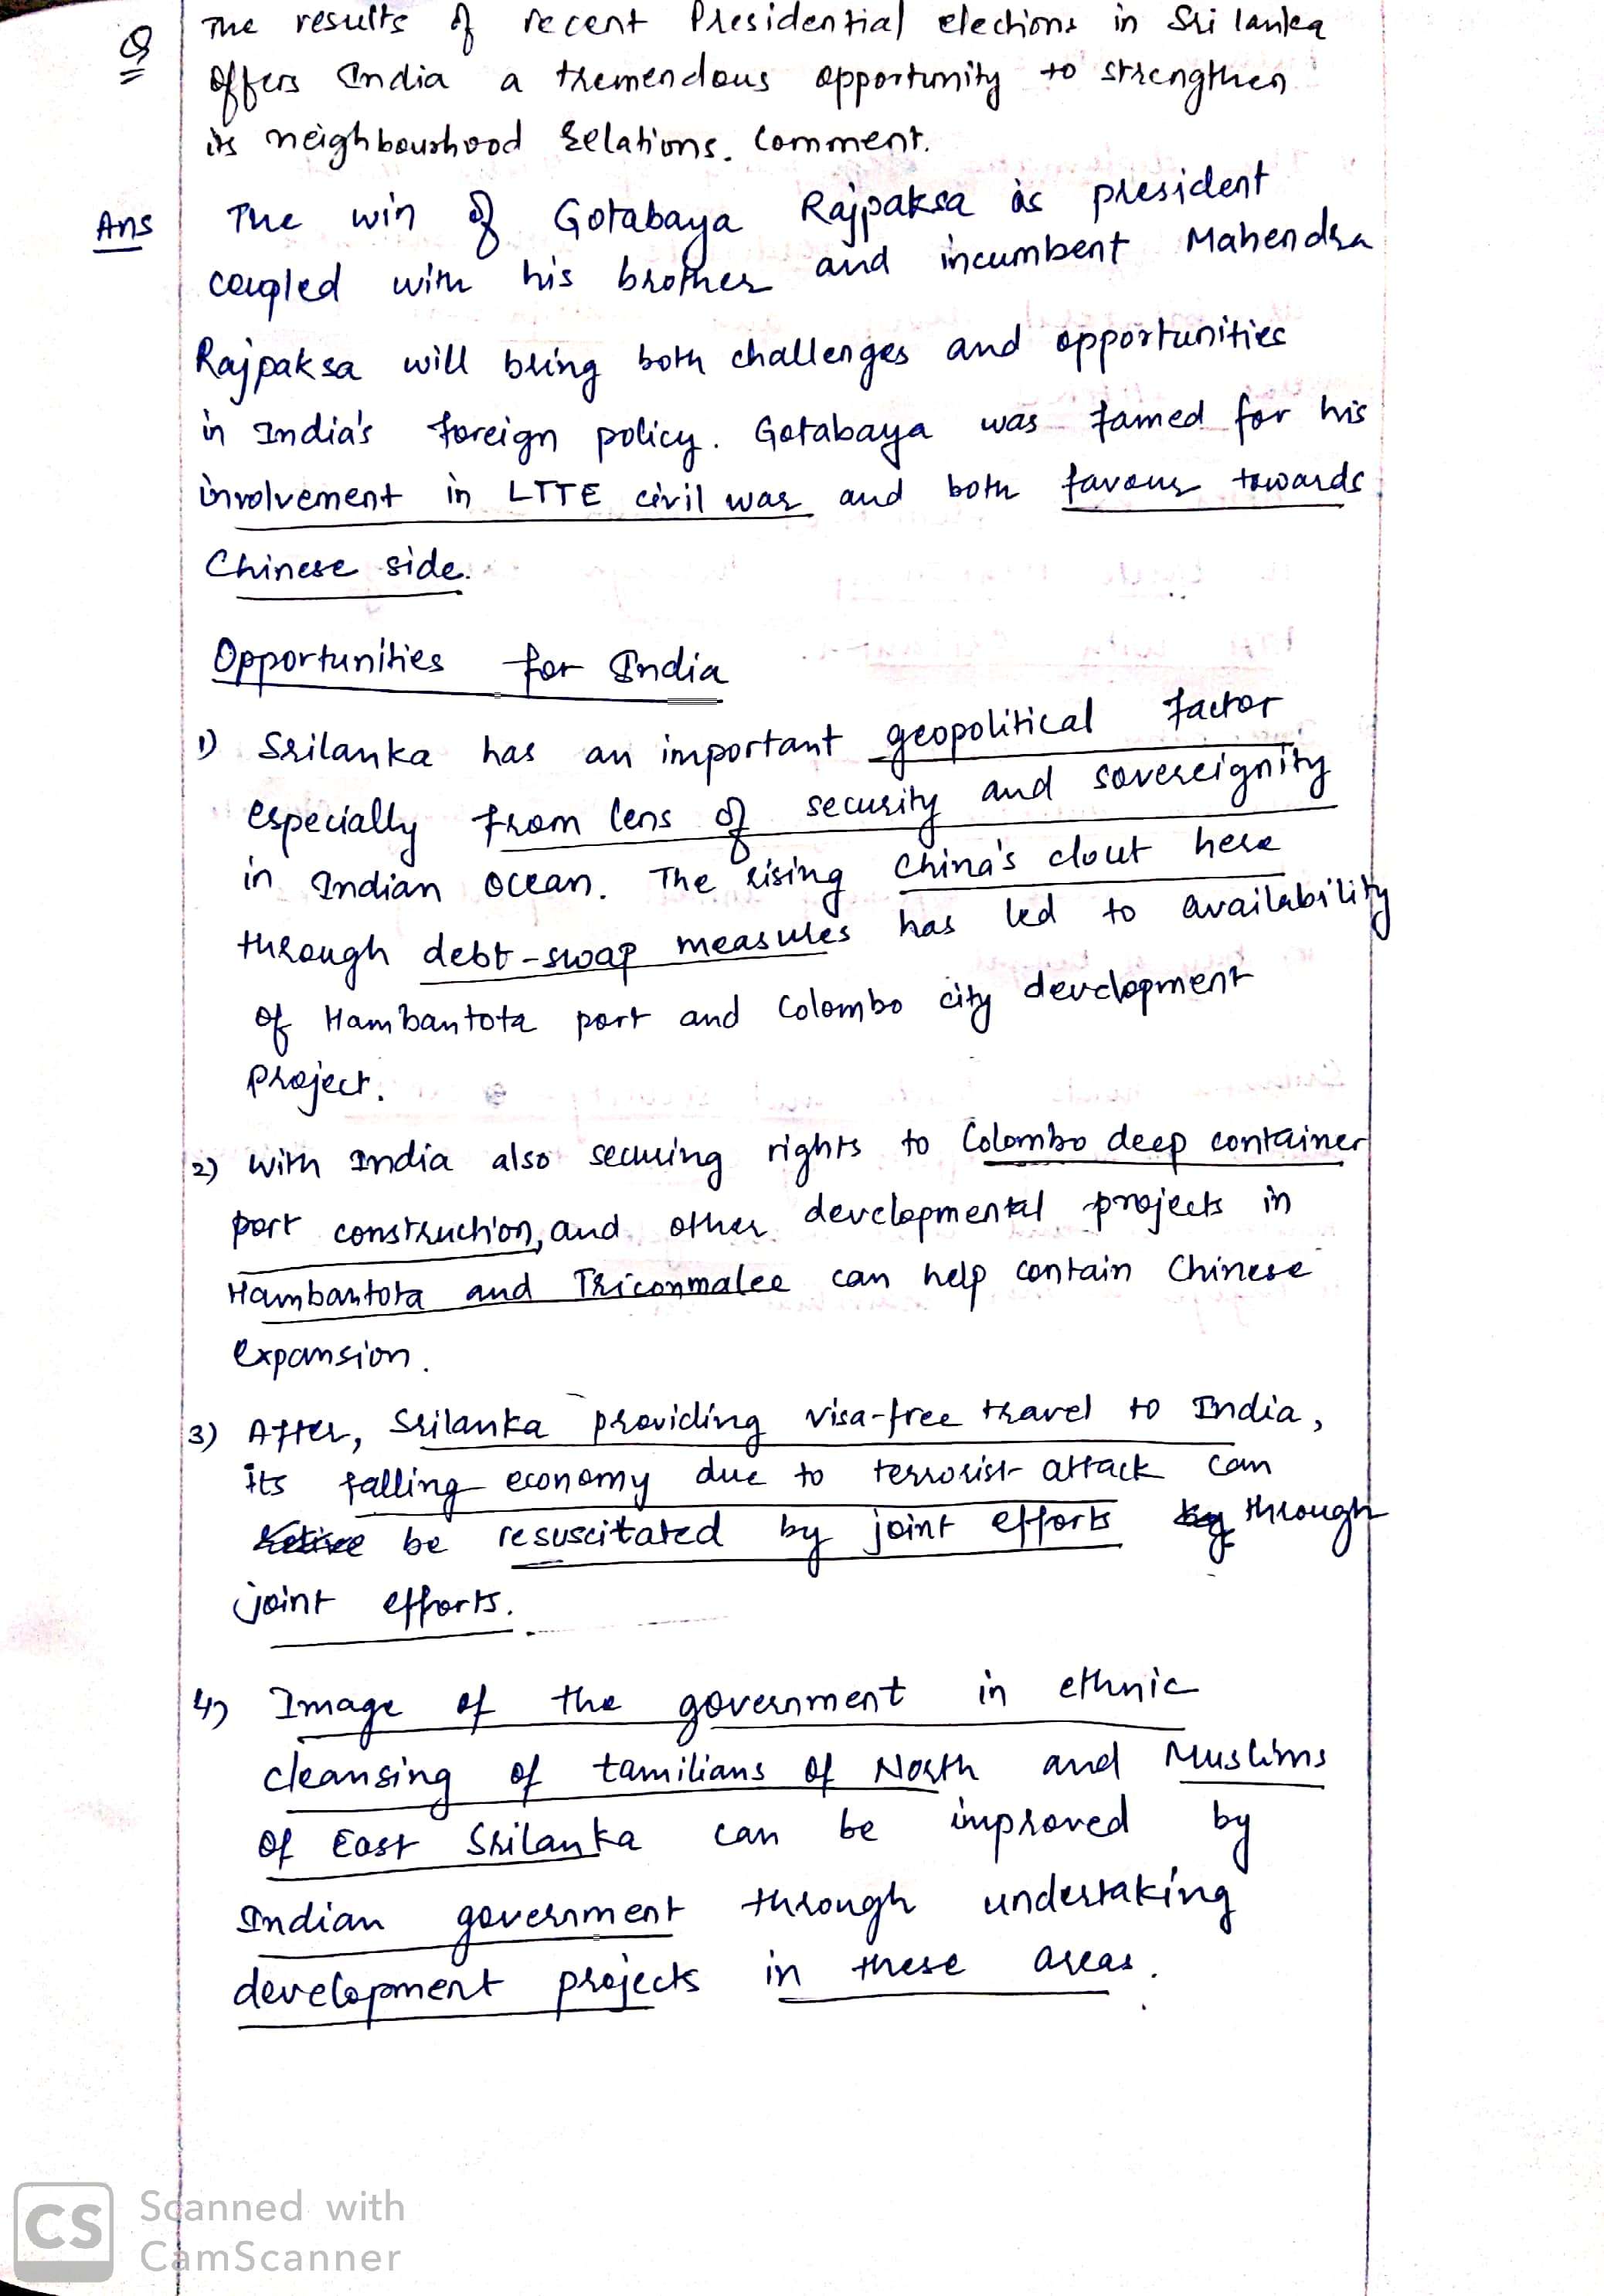 Q The results of recent Presidential elections in Sri lanka
offers India a tremendous opportunity to strengthen
its neighbourhood relations. Comment.
Ans The win of Gotabaya Rajpaksa as president
coupled with his brother and incumbent Mahendra
Rajpaksa will bring both challenges and opportunities
in India's foreign policy. Gotabaya was famed for his
involvement in LTTE civil war and both favour towards
Chinese side.
Opportunities for India
1) Srilanka has an important geopolitical factor
especially from lens of security and sovereignity
in Indian Ocean. The rising China's clout here
through debt-swap measures has led to availability
of Hambantota port and Colombo city development
project.
2) With India also securing rights to Colombo deep container
port construction, and other developmental projects in
Hambantota and Triconmalee can help contain Chinese
expansion.
3) After, Srilanka providing visa-free travel to India,
its falling economy due to terrorist attack can
be resuscitated by joint efforts by through
joint efforts.
4) Image of the government in ethnic
cleansing of tamilians of North and Muslims
of East Srilanka can be improved by
Indian government through undertaking
development projects in these areas.
CS Scanned with
CamScanner